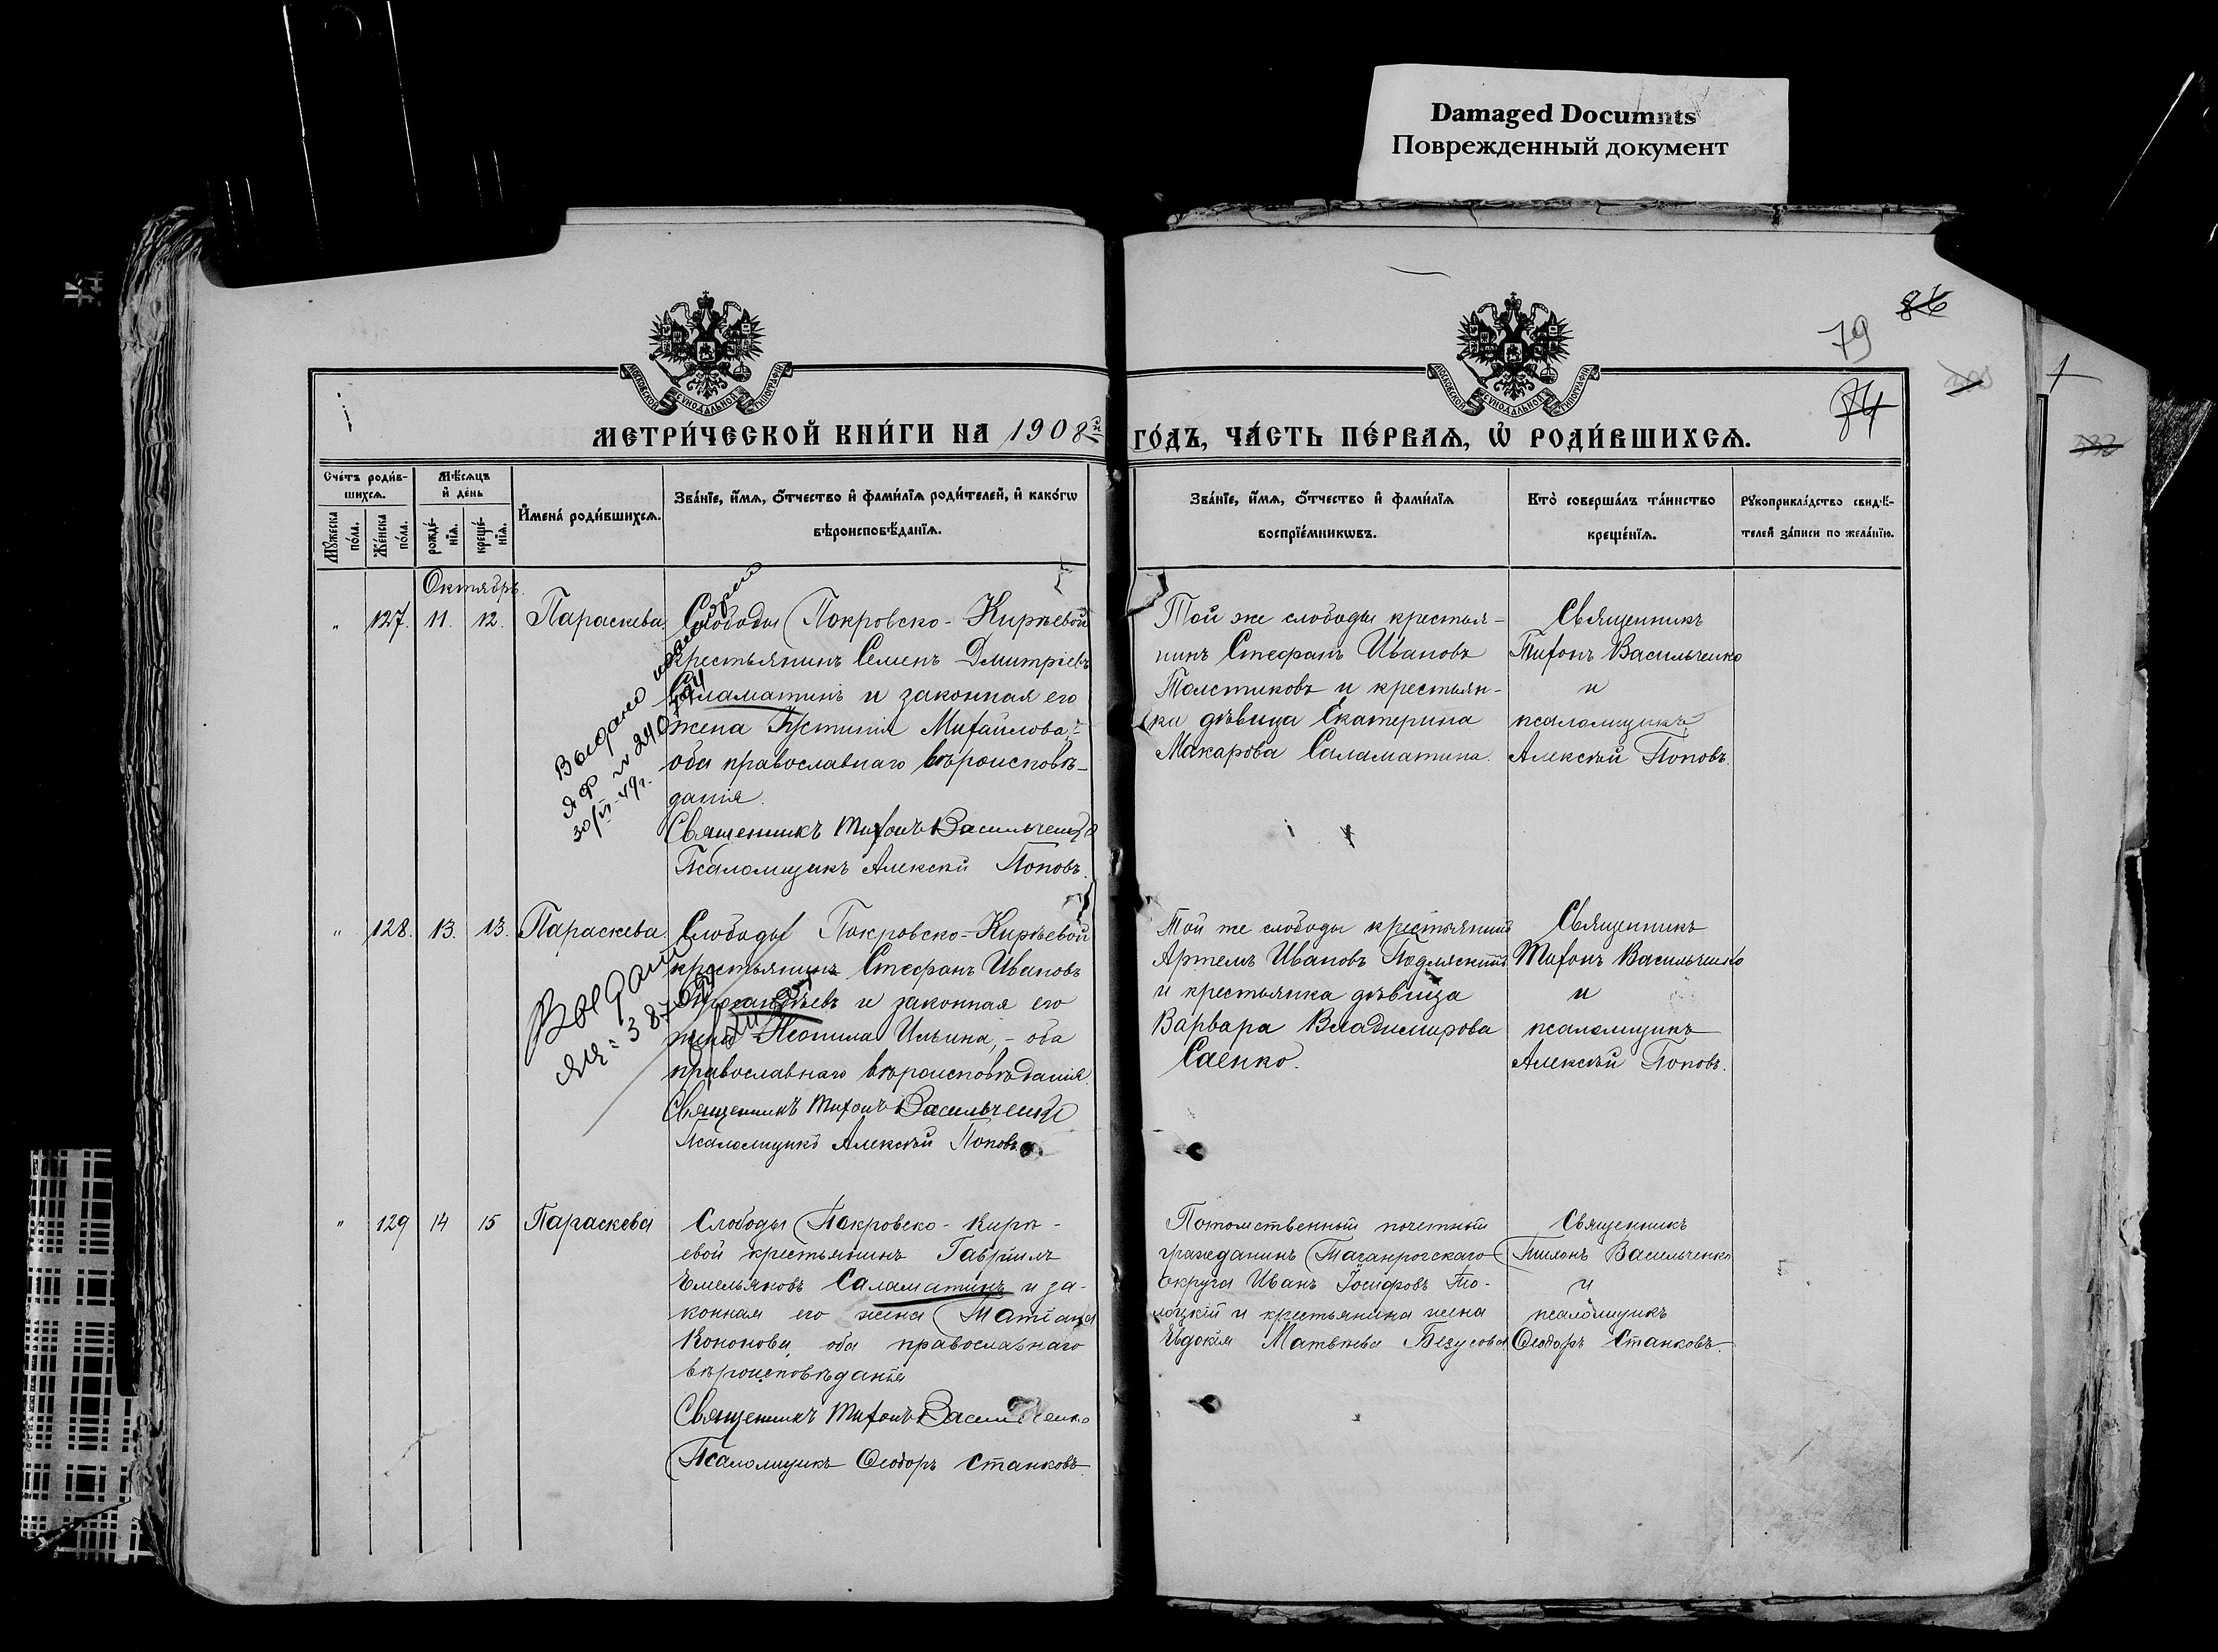 Damaged Documnts
Повреждeнный документ
86
79
84
МОСКОВСКОЙ СѴНОДАЛЬНОЙ ТИПОГРАФІИ
МОСКОВСКОЙ СѴНОДАЛЬНОЙ ТИПОГРАФІИ
МЕТРИ́ЧЕСКОЙ КНИ́ГИ НА 1908й ГО́ДЪ, ЧА́СТЬ ПЕ́РВАѦ, Ѡ҆ РОДИ́ВШИХСѦ.
Сче́тъ роди́в-
шихсѧ.
Мѣ́сѧцъ
и҆ де́нь
Мꙋ́жеска по́ла.
Же́нска по́ла.
рожде́-
нїѧ.
креще́-
нїѧ.
И҆мена́ роди́вшихсѧ.
Зва́нїе, и҆́мѧ, ѻ҆́тчество и҆ фами́лїѧ роди́телей, и҆ како́гѡ
вѣроисповѣ́данїѧ.
Зва́нїе, и҆́мѧ, ѻ҆́тчество и҆ фами́лїѧ
воспрїе́мникѡвъ.
Кто̀ соверша́лъ та́инство
креще́нїѧ.
Рꙋкоприкла́дство свидѣ́-
телей за́писи по жела́нїю.
Октябрь.
" 127. 11. 12. Параскева
Слободы Покровско-Кирѣевой
крестьянинъ Семенъ Дмитріевъ
Саламатинъ и законная его
жена Іустинія Михайлова,-
оба православнаго вѣроисповѣ-
данія.
Священникъ Тихонъ Васильченко
Псаломщикъ Алексѣй Поповъ.
Выдано
30/IV-49г.
Той же слободы крестья-
нинъ Стефанъ Ивановъ
Толстиковъ и крестьян-
ка дѣвица Екатерина
Макарова Саламатина.
Священникъ
Тихонъ Васильченко
и
псаломщикъ
Алексѣй Поповъ.
" 128. 13. 13. Параскева
Слободы Покровско-Кирѣевой
крестьянинъ Стефанъ Ивановъ
и законная его
жена Неонила Ильина,- оба
православнаго вѣроисповѣданія.
Священникъ Тихонъ Васильченко
Псаломщикъ Алексѣй Поповъ.
Выдан
Той же слободы крестьянинъ
Артемъ Ивановъ
и крестьянка дѣвица
Варвара Владимирова
Саенко.
Священникъ
Тихонъ Васильченко
и
псаломщикъ
Алексѣй Поповъ.
" 129 14 15 Параскева
Слободы Покровско-Кирѣ-
евой крестьянинъ Гавріилъ
Емельяновъ Саламатинъ и за-
конная его жена Татіана
Кононова, оба православнаго
вѣроисповѣданія
Священникъ Тихонъ Васильченко
Псаломщикъ Ѳеодоръ Станковъ.
Потомственный почетный
гражданинъ Таганрогскаго
округа Иванъ Іосифовъ По-
лоцкій и крестьянина жена
Евдокія Матвѣева Безусова
Священникъ
Тихонъ Васильченко
и
псаломщикъ
Ѳеодоръ Станковъ.